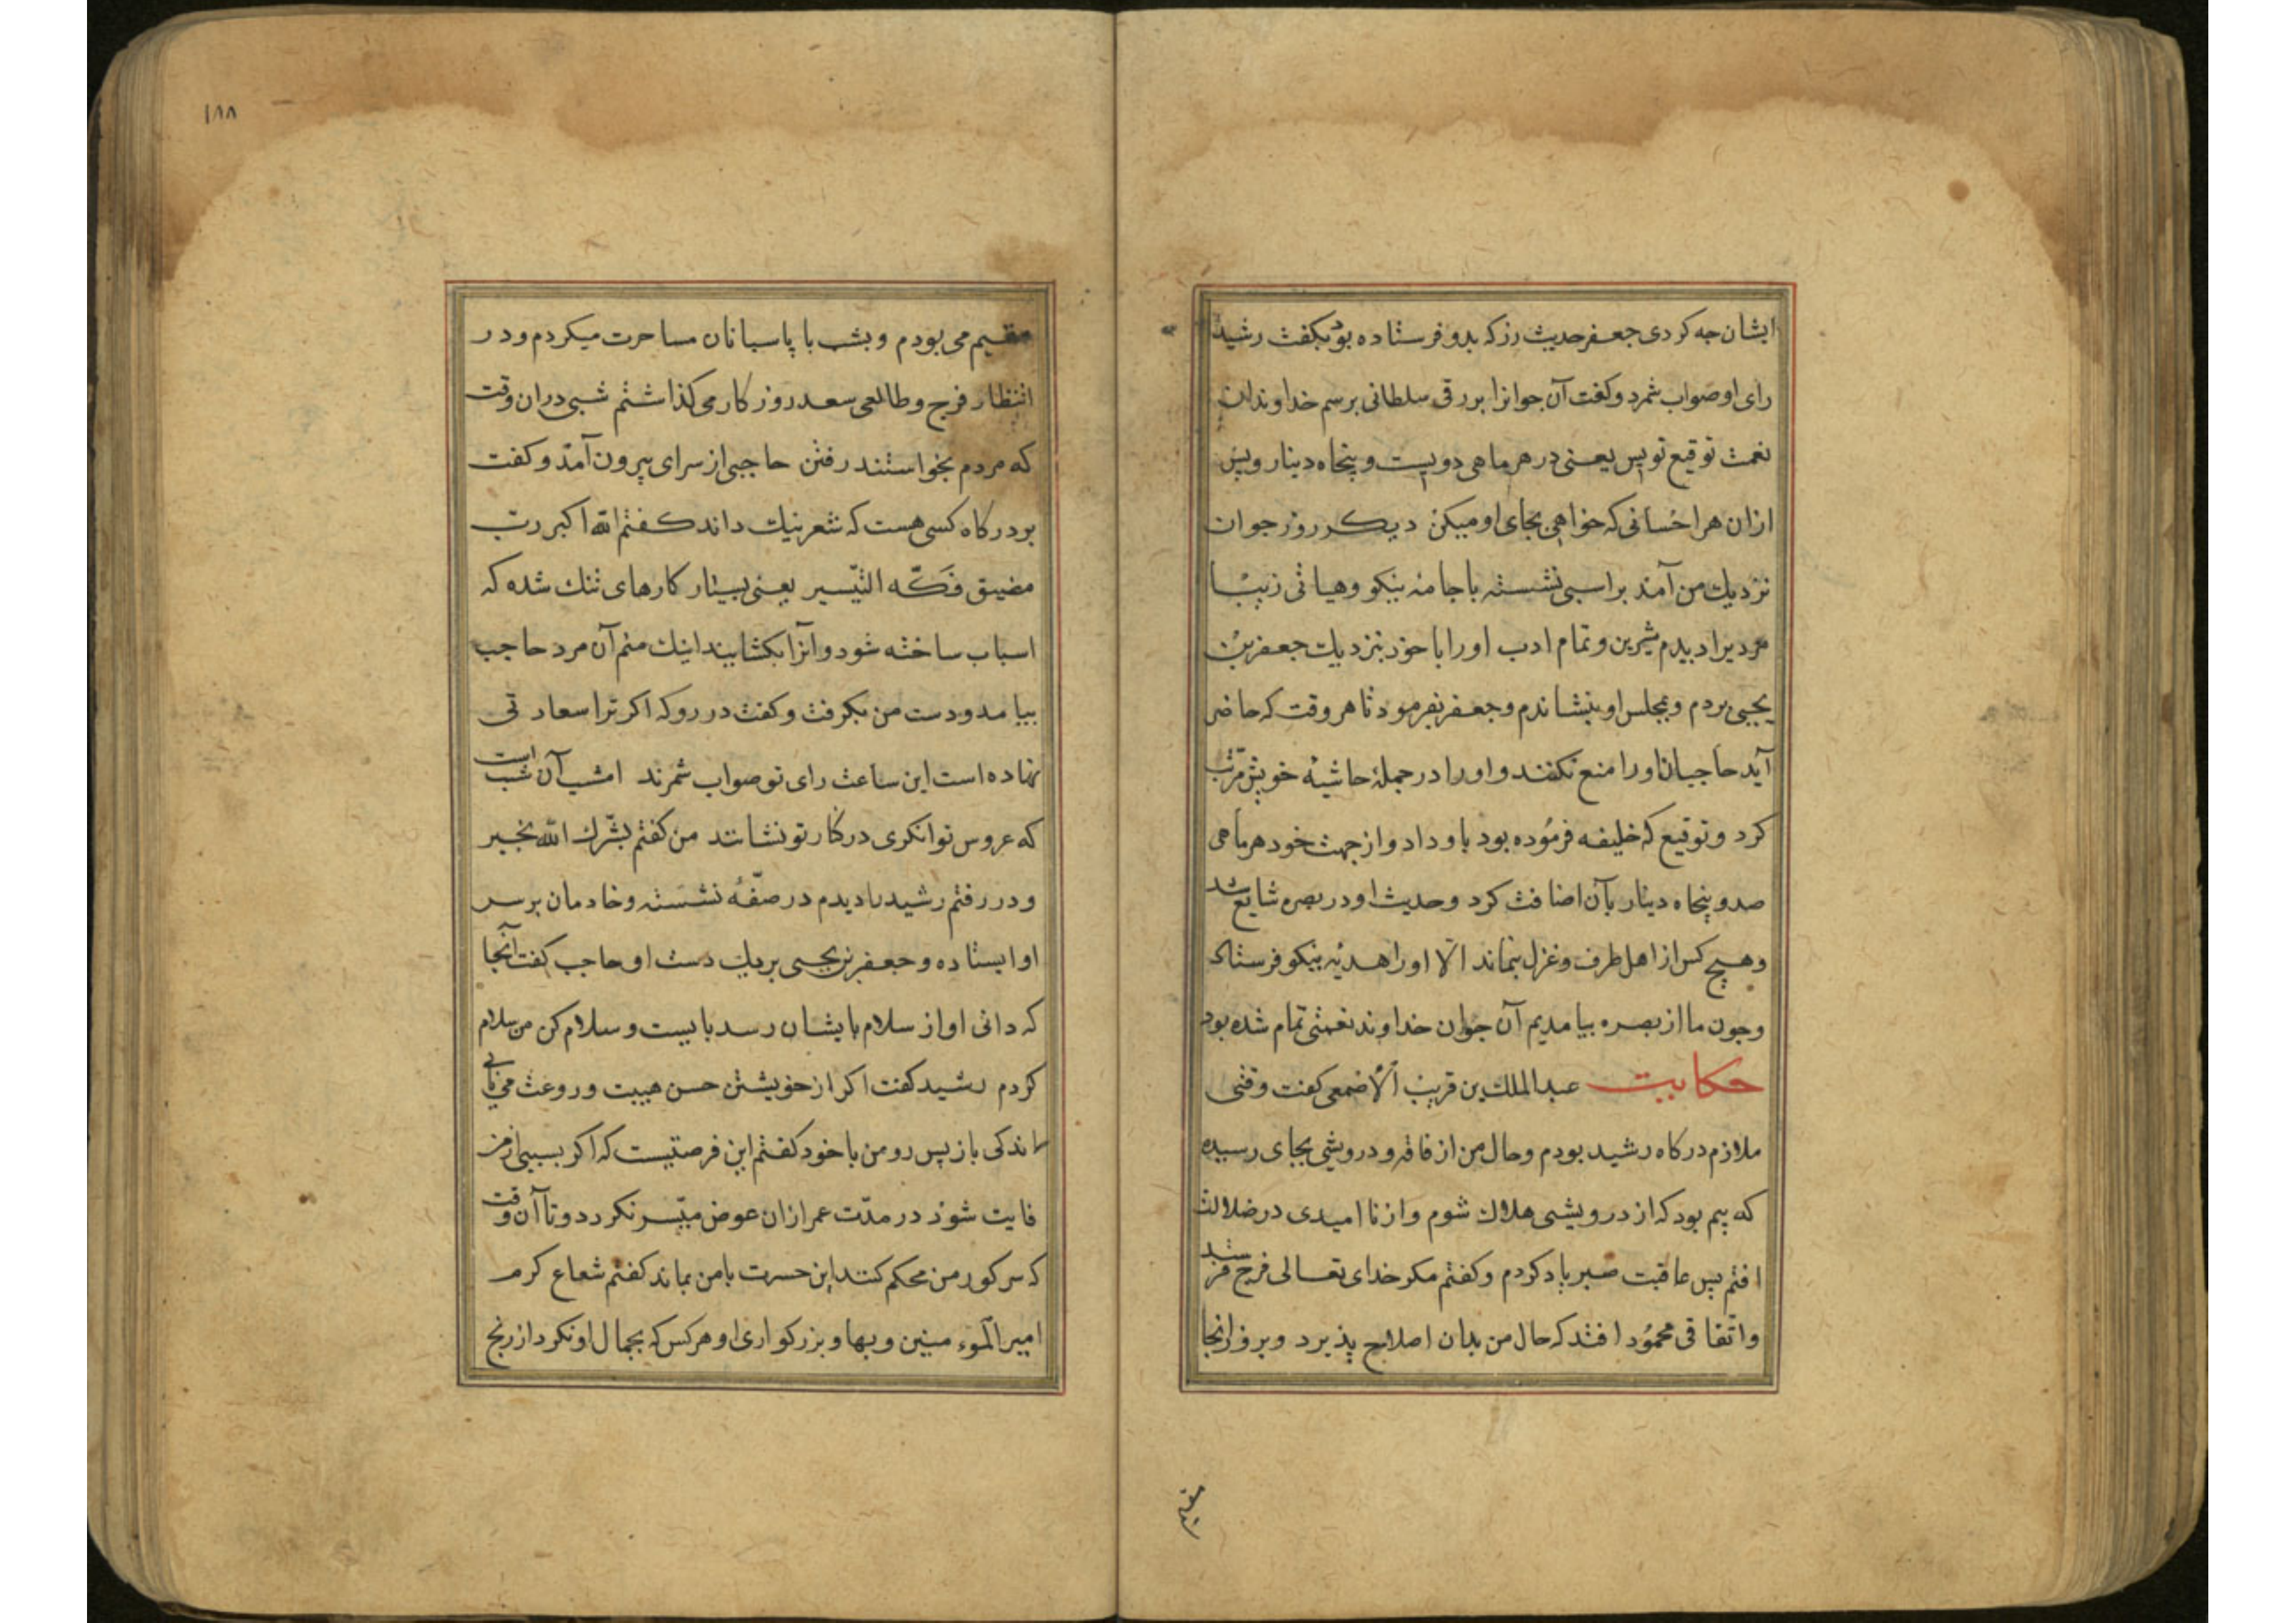 ایشان جه کردی جعفر حدیث رز که بدو فرستاده بود بکفت رشید
رای او صواب شمرد و کفت آن جوانرا بر رقی سلطانی برسم خداوندان
نعمت توقیع نویس یعنی در هر ماهی دویست و پنجاه دینار و پس
ازان هر احسانی که خواهی بجای او میکن دیکر روز جوان
نزدیك من آمد بر اسبی نشسته با جامهٔ نیکو و هیاتی زیبا
مردیرا دیدم شیرین و تمام ادب او را با خود بنزدیك جعفر بن
یحیی بردم و بمجلس او بنشاندم و جعفر بفرمود تا هر وقت که حاضر
آید حاجبان او را منع نکنند و او را در جملهٔ حاشیهٔ خویش مرتب
کرد و توقیع که خلیفه فرموده بود باو داد و از جهت خود هر ماهی
صد و پنجاه دینار بآن اضافت کرد و حدیث او در بصره شایع شد
و هیچ کس از اهل طرف و غزل نماند الا او را هدیهٔ نیکو فرستاد
و جون ما از بصره بیامدیم آن جوان خداوند نعمتی تمام شده بود
حکایت عبد الملك بن قریب الاصمعی کفت وقتی
ملازم درکاه رشید بودم و حال من از فاقه و درویشی بجای رسیده
که بیم بود که از درویشی هلاك شوم و از نا امیدی در ضلالت
افتم پس عاقبت صبر یاد کردم و کفتم مکر خدای تعالی فرج فرستد
و اتفاقی محمود افتد که حال من بدان اصلاح پذیرد و بروز انجا
مقیم
۱۸۸
مقیم می بودم و بشب با پاسبانان مساحرت میکردم و در
انتظار فرج و طالعی سعد روزکار می کذاشتم شبی دران وقت
که مردم بخواستند رفتن حاجبی از سرای بیرون آمد و کفت
بر درکاه کسی هست که شعر نیك داند کفتم الله اکبر رب
مضیق فکّه التیسیر یعنی بسیار کارهای تنك شده که
اسباب ساخته شود و آنرا بکشایند اینك منم آن مرد حاجب
بیامد و دست من بکرفت و کفت در رو که اکر ترا سعادتی
نهاده است این ساعت رای تو صواب شمرند امشب آن شب است
که عروس توانکری در کنار تو نشانند من کفتم بشّرك الله بخیر
و در رفتم رشید را دیدم در صفّهٔ نشسته و خادمان بر سر
او ایستاده و جعفر بن یحیی بر یك دست او حاجب کفت آنجا
که دانی اواز سلام بایشان رسد بایست و سلام کن من سلام
کردم رشید کفت اکر از خویشتن حسن هیبت و روعت می یابی
اندکی باز پس رو من با خود کفتم این فرصتیست که اکر بسببی از من
فایت شود در مدّت عمر ازان عوض میسّر نکردد و تا آن وقت
که سر کور من محکم کنند این حسرت با من بماند کفتم شعاع کرم
امیر المومنین و بها و بزرکواری او هر کس که بجمال او نکرد از رنج